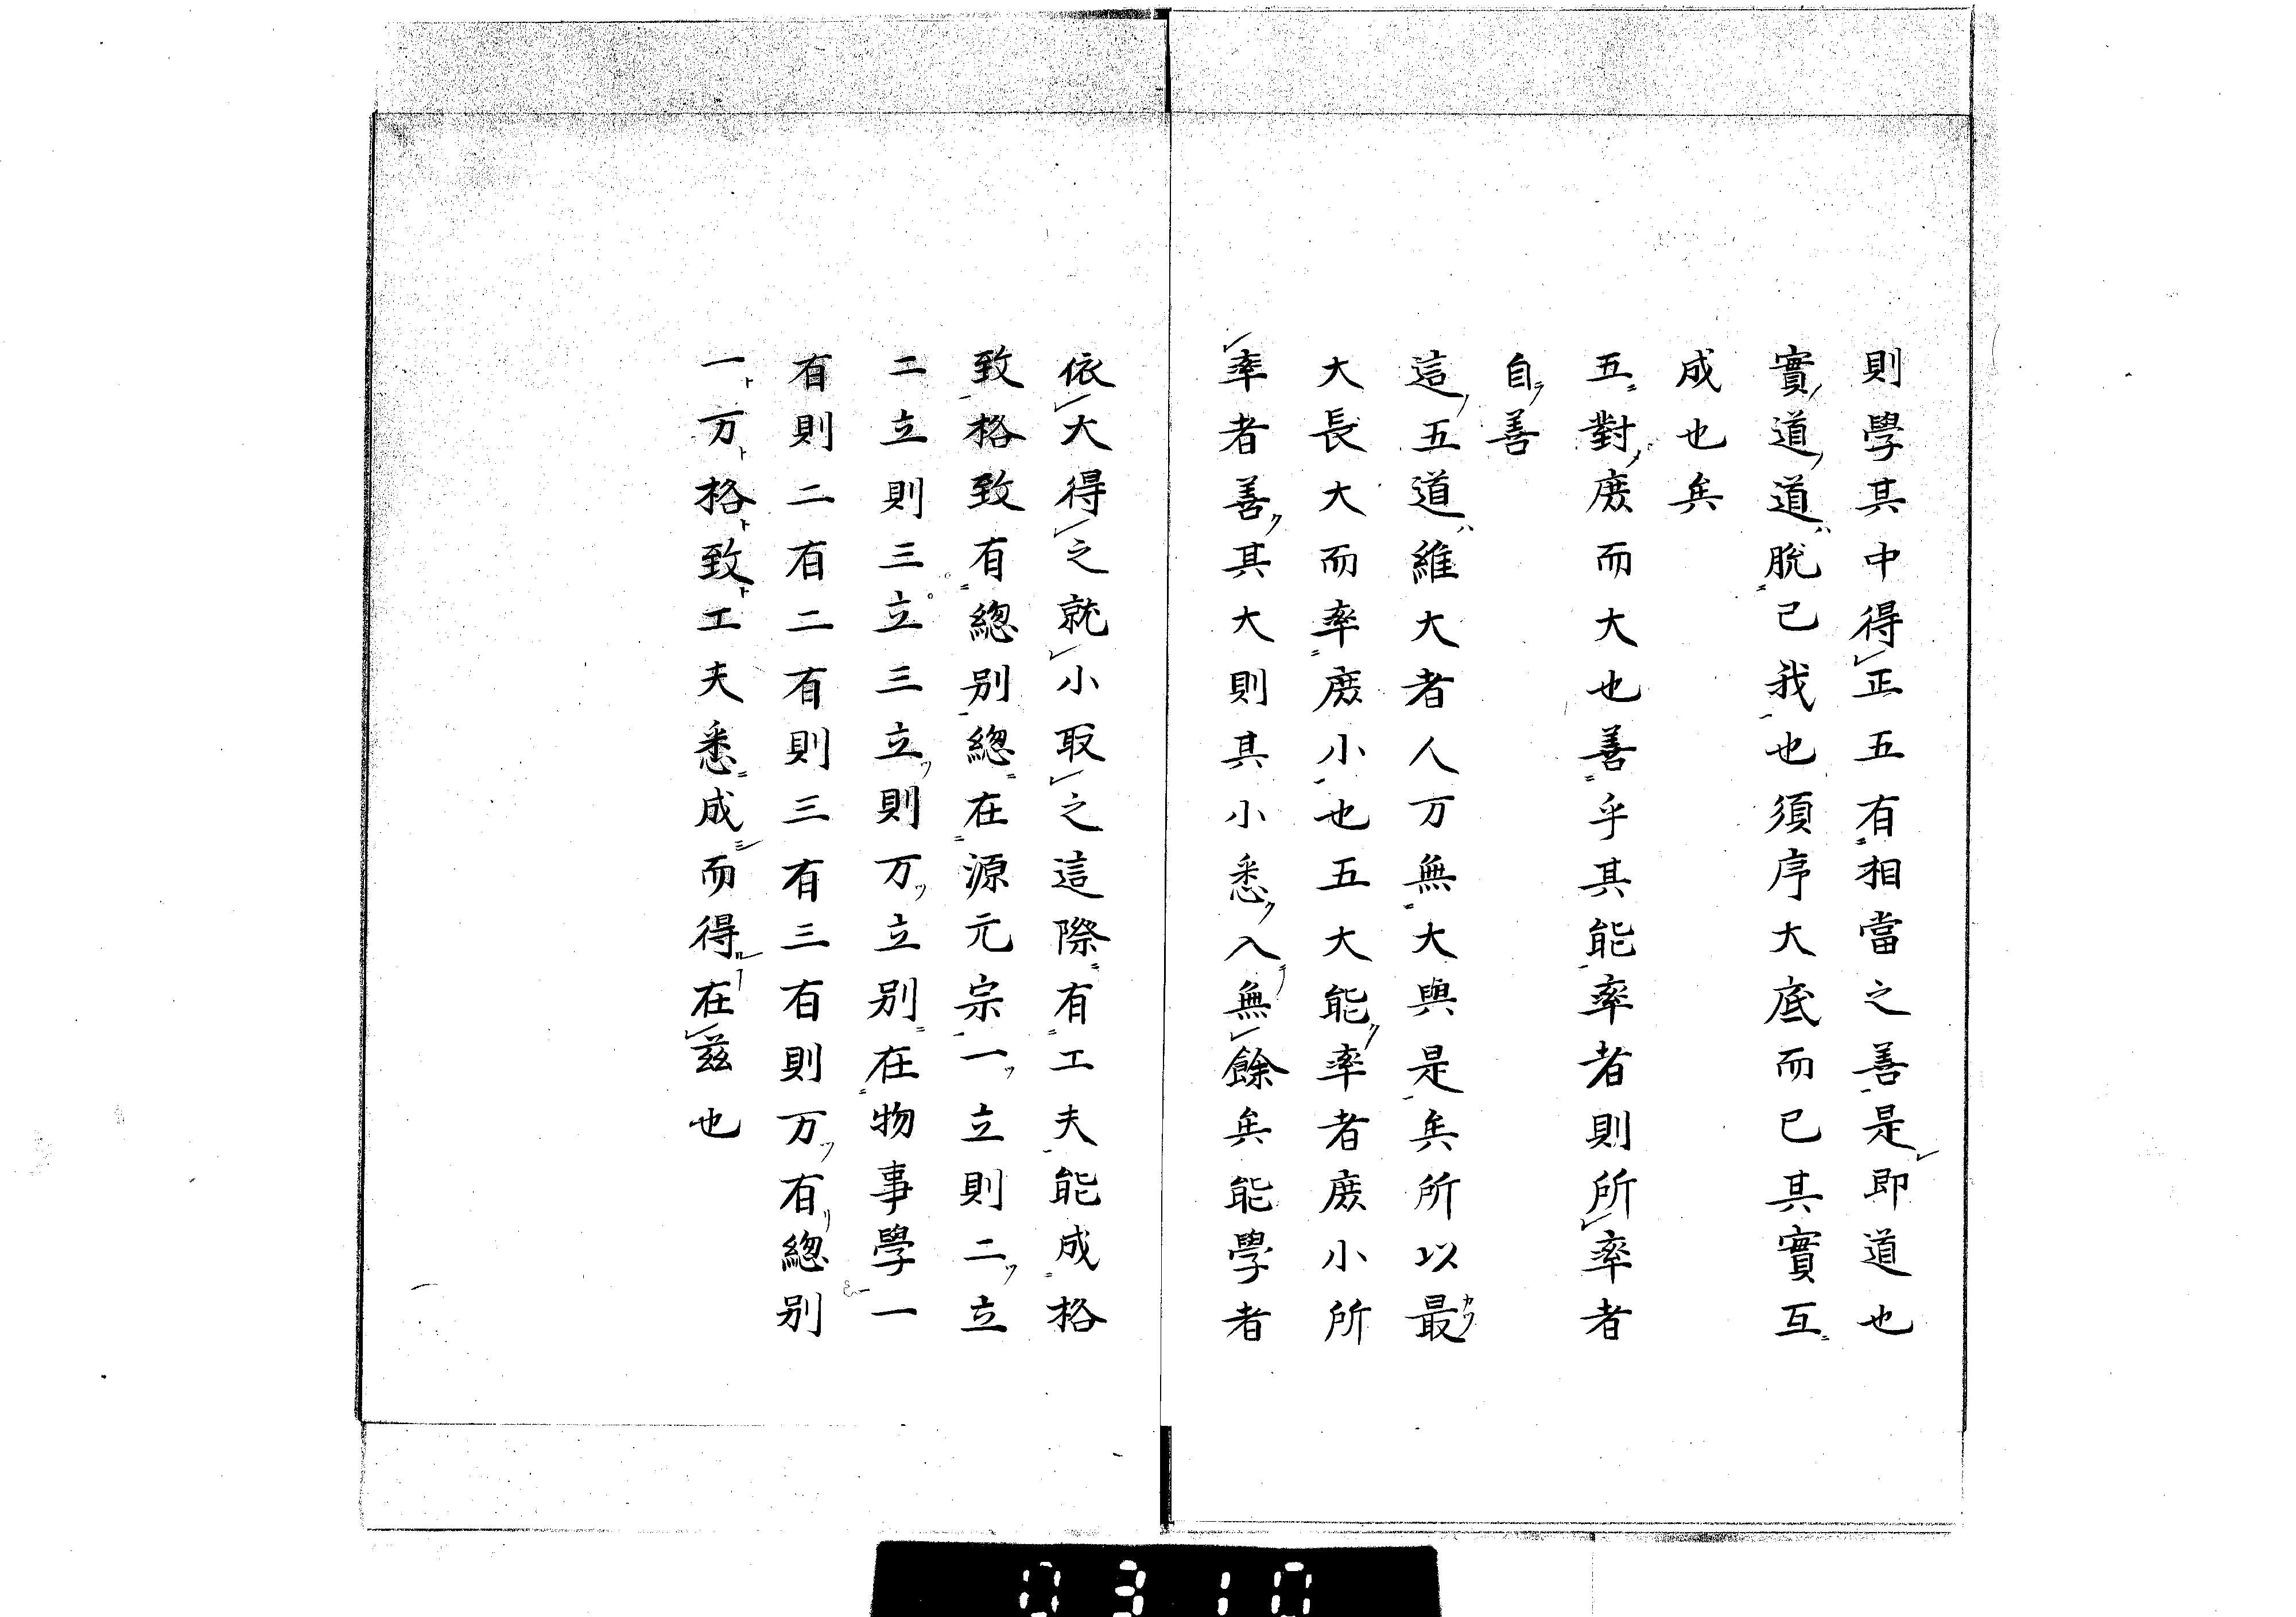 則學其中得正五有相當之善是即道也
實道道脫己我也須序大底而已其實互
成也矣
五對度而大也善乎其能率者則所率者
自善
這五道維大者人万無大與是矣所以最
大長大而率度小也五大能率者度小所
率者善其大則其小悉入無餘矣能學者
依大得之就小取之這際有工夫能成格
致格致有總別總在源元宗一立則二立
二立則三立三立則万立別在物事學一
有則二有二有則三有三有則万有總別
一万格致工夫悉成而得在茲也
0310